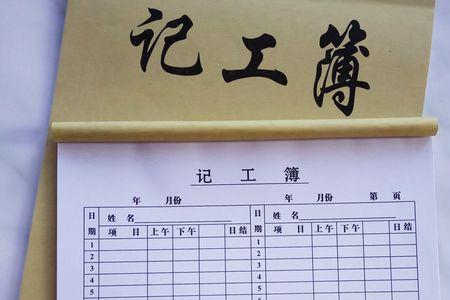 记工簿
记 工 簿
年 月份 年 月份 第 页
日期 姓 名 姓 名
项 目 上午 下午 日结 日期 项 目 上午 下午 日结
1 1
2 2
3 3
4 4
5 5
6 6